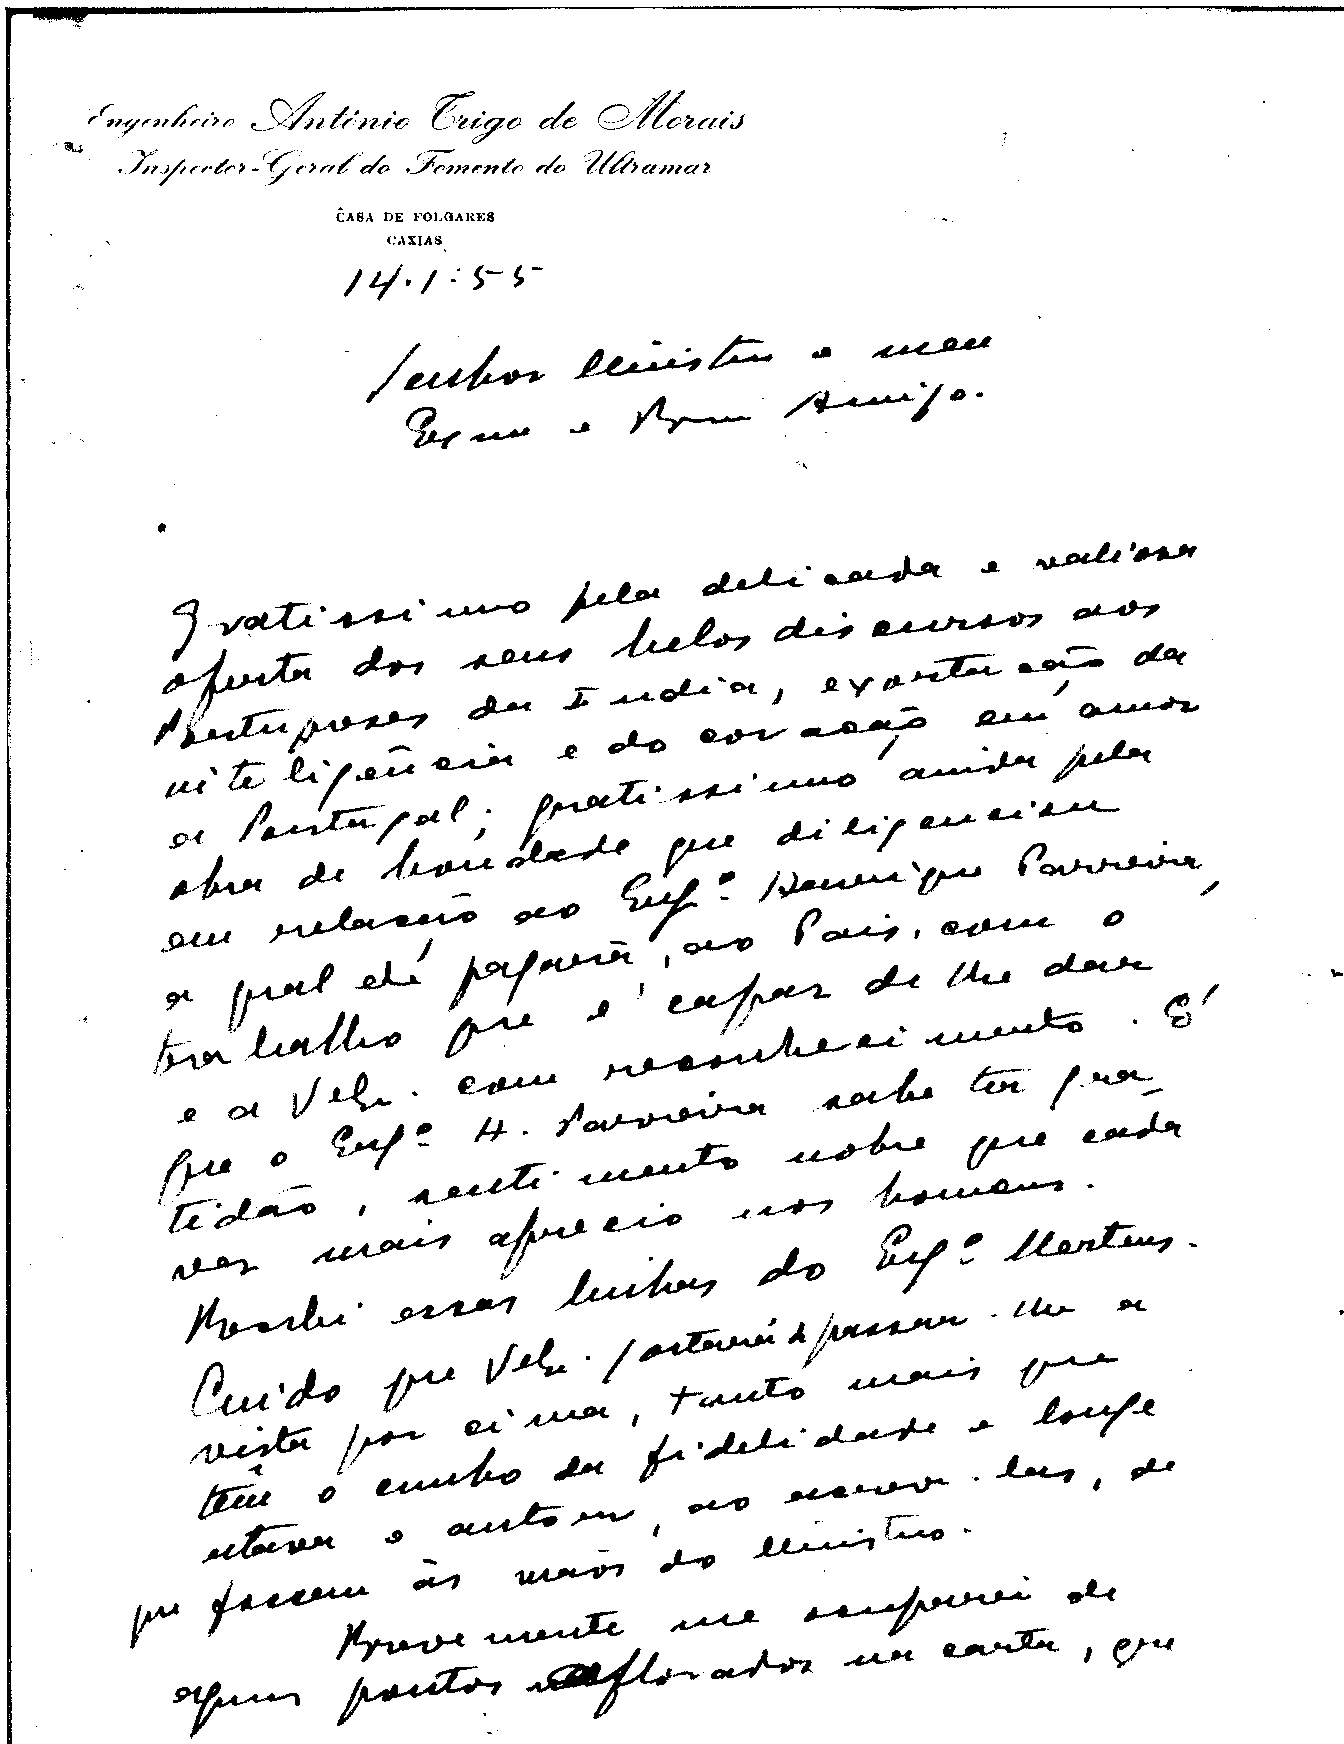 Engenheiro António Trigo de Morais
Inspector-Geral do Fomento do Ultramar
CASA DE FOLGARES
CAXIAS
14.1.55
Senhor Ministro e meu
Exmo e Bom Amigo.
Gratissimo pela delicada e valiosa
oferta dos seus belos discursos aos
Portugueses da India, exortação da
inteligência e do coração em amor
a Portugal; gratissimo ainda pela
obra de bondade que diligenciou
em relação ao Engº Henrique Parreira,
a qual ele pagará, ao País, com o
trabalho que é capaz de lhe dar
e a V. Exa. com reconhecimento. É
que o Engº H. Parreira sabe ter gra-
tidão, sentimento nobre que cada
vez mais aprecio nos homens.
Recebi essas linhas do Engº Martens.
Cuido que V. Exa. gostará de passar-lhe a
vista por cima, tanto mais que
têm o cunho da fidelidade e longe
estava o autor, ao escrevê-las, de
que fossem às mãos do Ministro.
Brevemente me ocuparei de
alguns pontos aflorados na carta, que